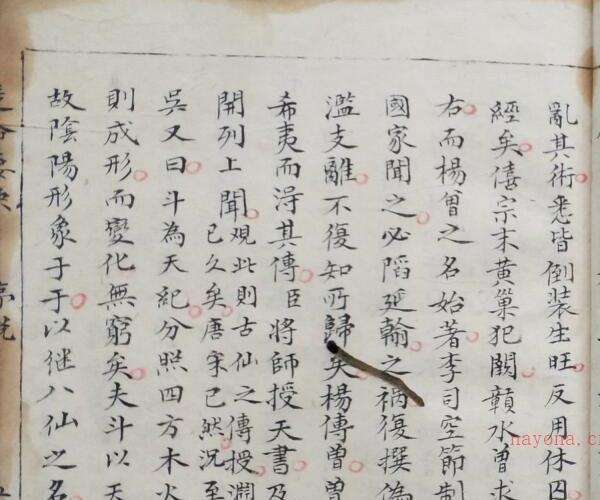 亂其術悉皆倒装生旺反用休囚
經矣僖宗末黄巢犯闕贛水曾求
右而楊曾之名始著李司空節制
國家聞之必蹈延翰之祸復撰偽
濫支離不復知所歸矣楊傳曾曾
希夷而淂其傳臣將師授天書及
開列上聞觀此則古仙之傳授淵
已久矣唐宋已然况至
吳又曰斗為天紀分照四方木火
則成形而變化無窮矣夫斗以天
故陰陽形象于于以继八仙之名
hayona.c